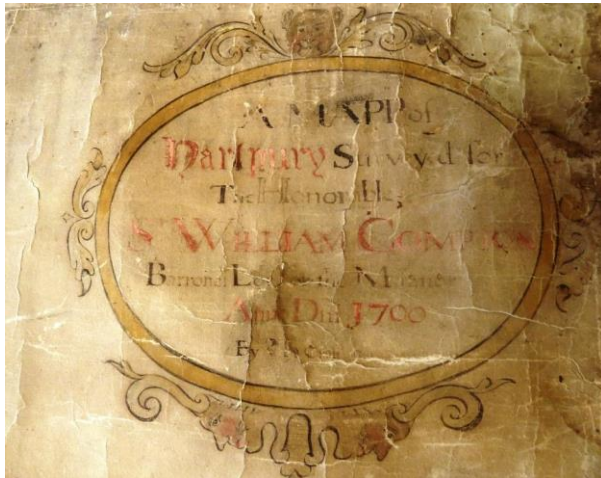 A MAPP of
Hartpury Survey'd for
The Honorable,
Sr WILLIAM COMPTON
Barronet Lord of the Mannor
Anno Dni 1700
By